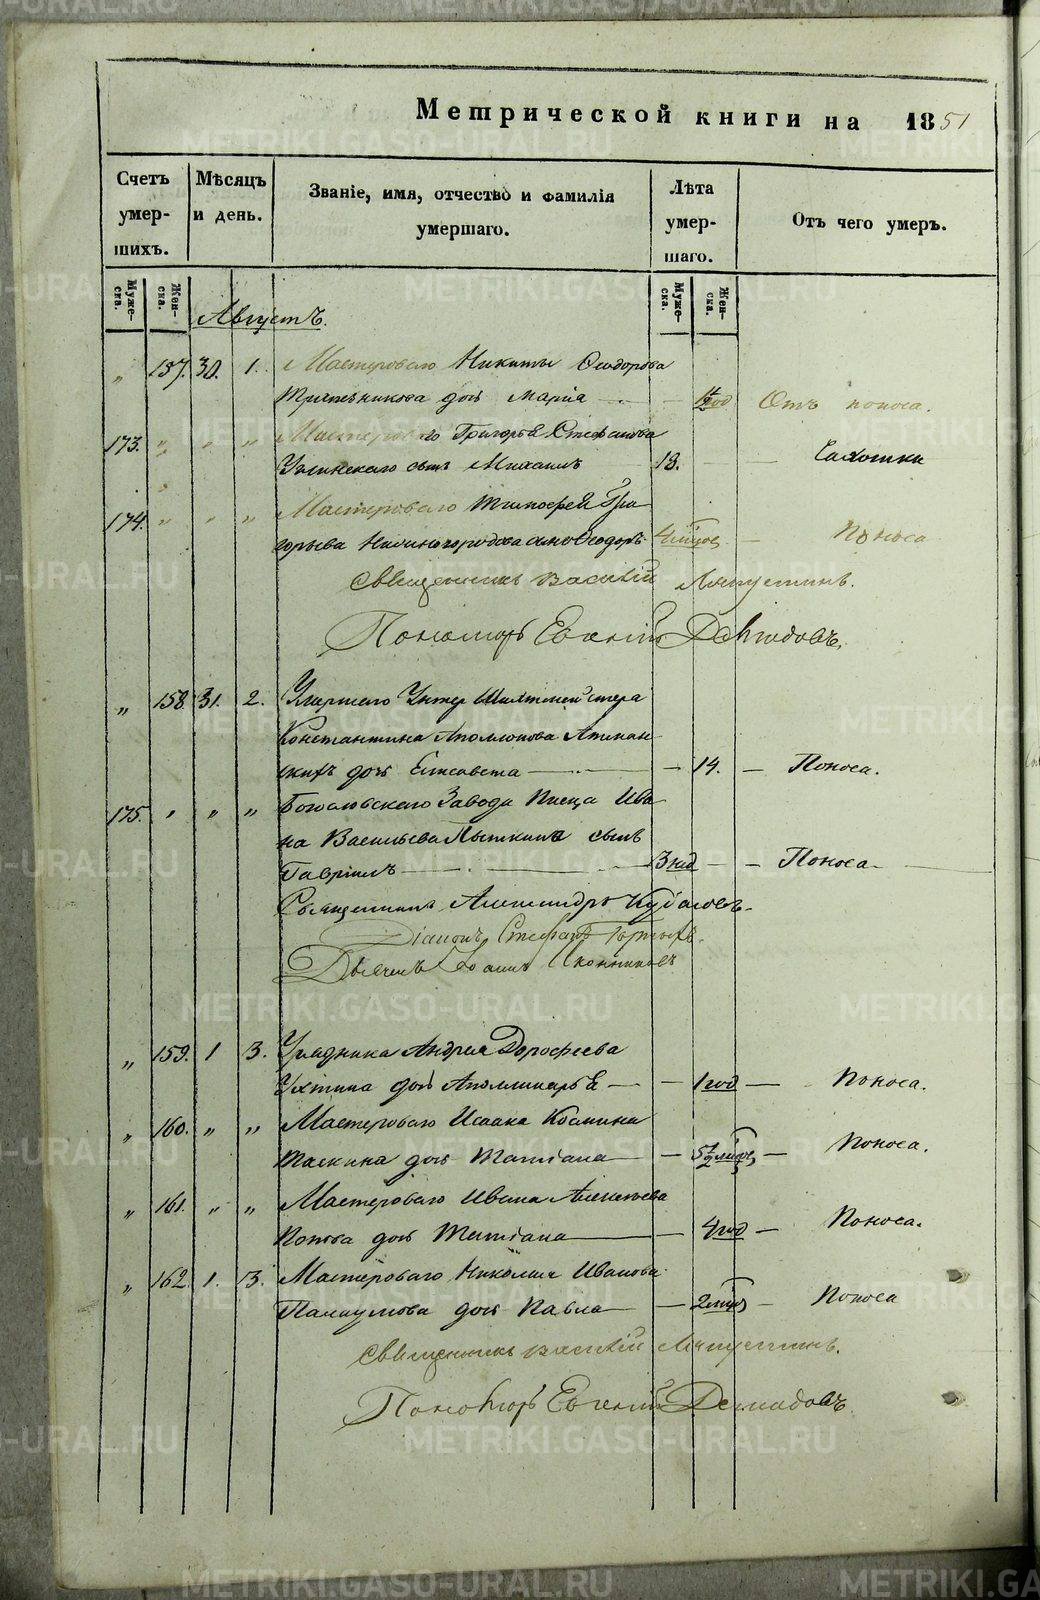 Метрической книги на 1851
Счетъ умер- шихъ.
Мѣсяцъ и день.
Званіе, имя, отчество и фамилія умершаго.
Лѣта умер- шаго.
Отъ чего умеръ.
Муже- ска.
Жен- ска.
Муже- ска.
Жен- ска.
Августъ.
„ 157. 30. 1. Мастероваго Никиты Ѳеодорова
дочь Марія — год Отъ поноса.
173. „ „ „ Мастероваго Григорья Стефанова
сынъ Михаилъ 18. — Чахотки
174. „ „ „ Мастероваго Тимофея Гри
горьева Нижнегородова сынъ Ѳеодоръ 4 — Поноса
Священникъ Василій Ляпустинъ.
Пономарь Евгеній Демидовъ.
„ 158. 31. 2. Умершаго Унтер Шихтмейстера
Константина Аполлонова
дочь Елисавета — 14. — Поноса.
175. „ „ „ Богословскаго Завода Писца Ива
на Васильева сынъ
Гавріилъ — 3 нед — Поноса
Священникъ Александръ
Діаконъ Стефанъ
Дьячекъ Іоаннъ Иконниковъ
„ 159. 1 3. Урядника Андрея Дорофеева
дочь Аполлинарія — 1 год — Поноса.
„ 160. „ „ Мастероваго Исаака Космина
дочь Татіана — 5½ — Поноса.
„ 161. „ „ Мастероваго Ивана Алексѣева
Попова дочь Татіана — 4 год — Поноса.
„ 162 1. 3. Мастероваго Николая Иванова
дочь Павла — 2 — Поноса
Священникъ Василій Ляпустинъ.
Пономарь Евгеній Демидовъ
METRIKI.GASO-URAL.RU